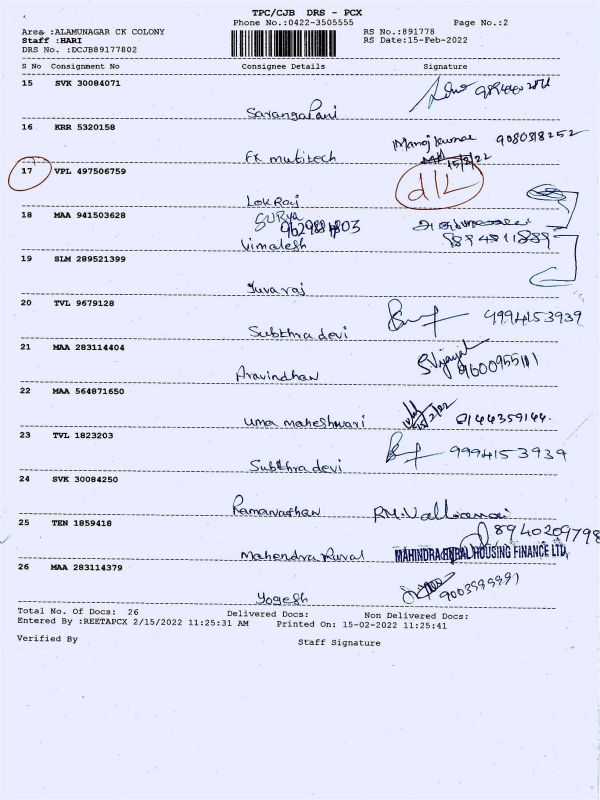 TPC/CJB DRS - PCX
Phone No.:0422-3505555 Page No.:2
Area :ALAMUNAGAR CK COLONY RS No.:891778
Staff :HARI RS Date:15-Feb-2022
DRS No. :DCJB89177802
S No Consignment No Consignee Details Signature
15 SVK 30084071
SarangaPani
16 KRR 5320158 Manoj kumar 9080318252
FK mutitech 15/2/22
17 VPL 497506759 d/L
LokRaj
18 MAA 941503628 Surya
Vimalesh
19 SLM 289521399
Yuvaraj
20 TVL 9679128 4994153939
Subthra devi
21 MAA 283114404 S Vijayal
Aravindhan 9600955111
22 MAA 564871650
Uma maheshwari
23 TVL 1823203 9994153939
Subthra devi
24 SVK 30084250
Ramanathan RM.Valliamai
25 TEN 1859418 8940209798
Mahendra Rural MAHINDRA RURAL HOUSING FINANCE LTD,
26 MAA 283114379 9003999991
Yogesh
Total No. Of Docs: 26 Delivered Docs: Non Delivered Docs:
Entered By :REETAPCX 2/15/2022 11:25:31 AM Printed On: 15-02-2022 11:25:41
Verified By Staff Signature